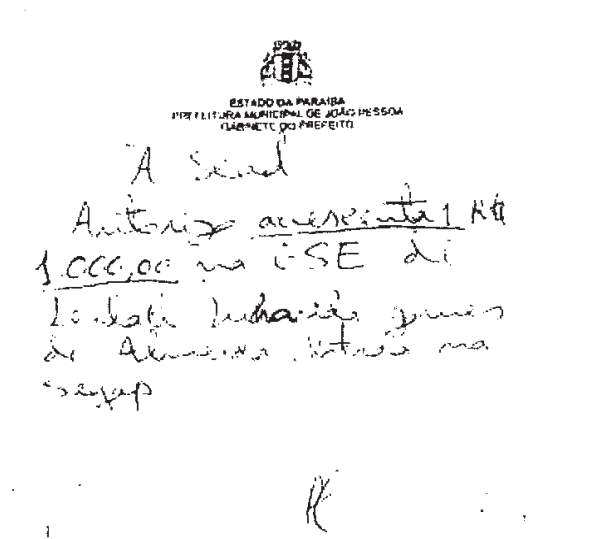 ESTADO DA PARAÍBA
PREFEITURA MUNICIPAL DE JOÃO PESSOA
GABINETE DO PREFEITO
A Sead
Autorizo acrescentar R$
1.000,00 na GSE de
de Almeida, lotado na
Segap